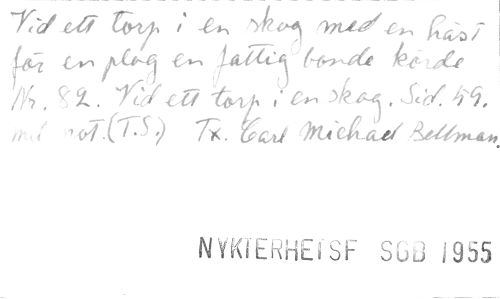 Vid ett torp i en skog med en häst
för en plog en fattig bonde körde
Nr. 82. Vid ett torp i en skog. Sid. 59.
med not. (T.S.) Tx. Carl Michael Bellman.
NYKTERHETSF SGB 1955